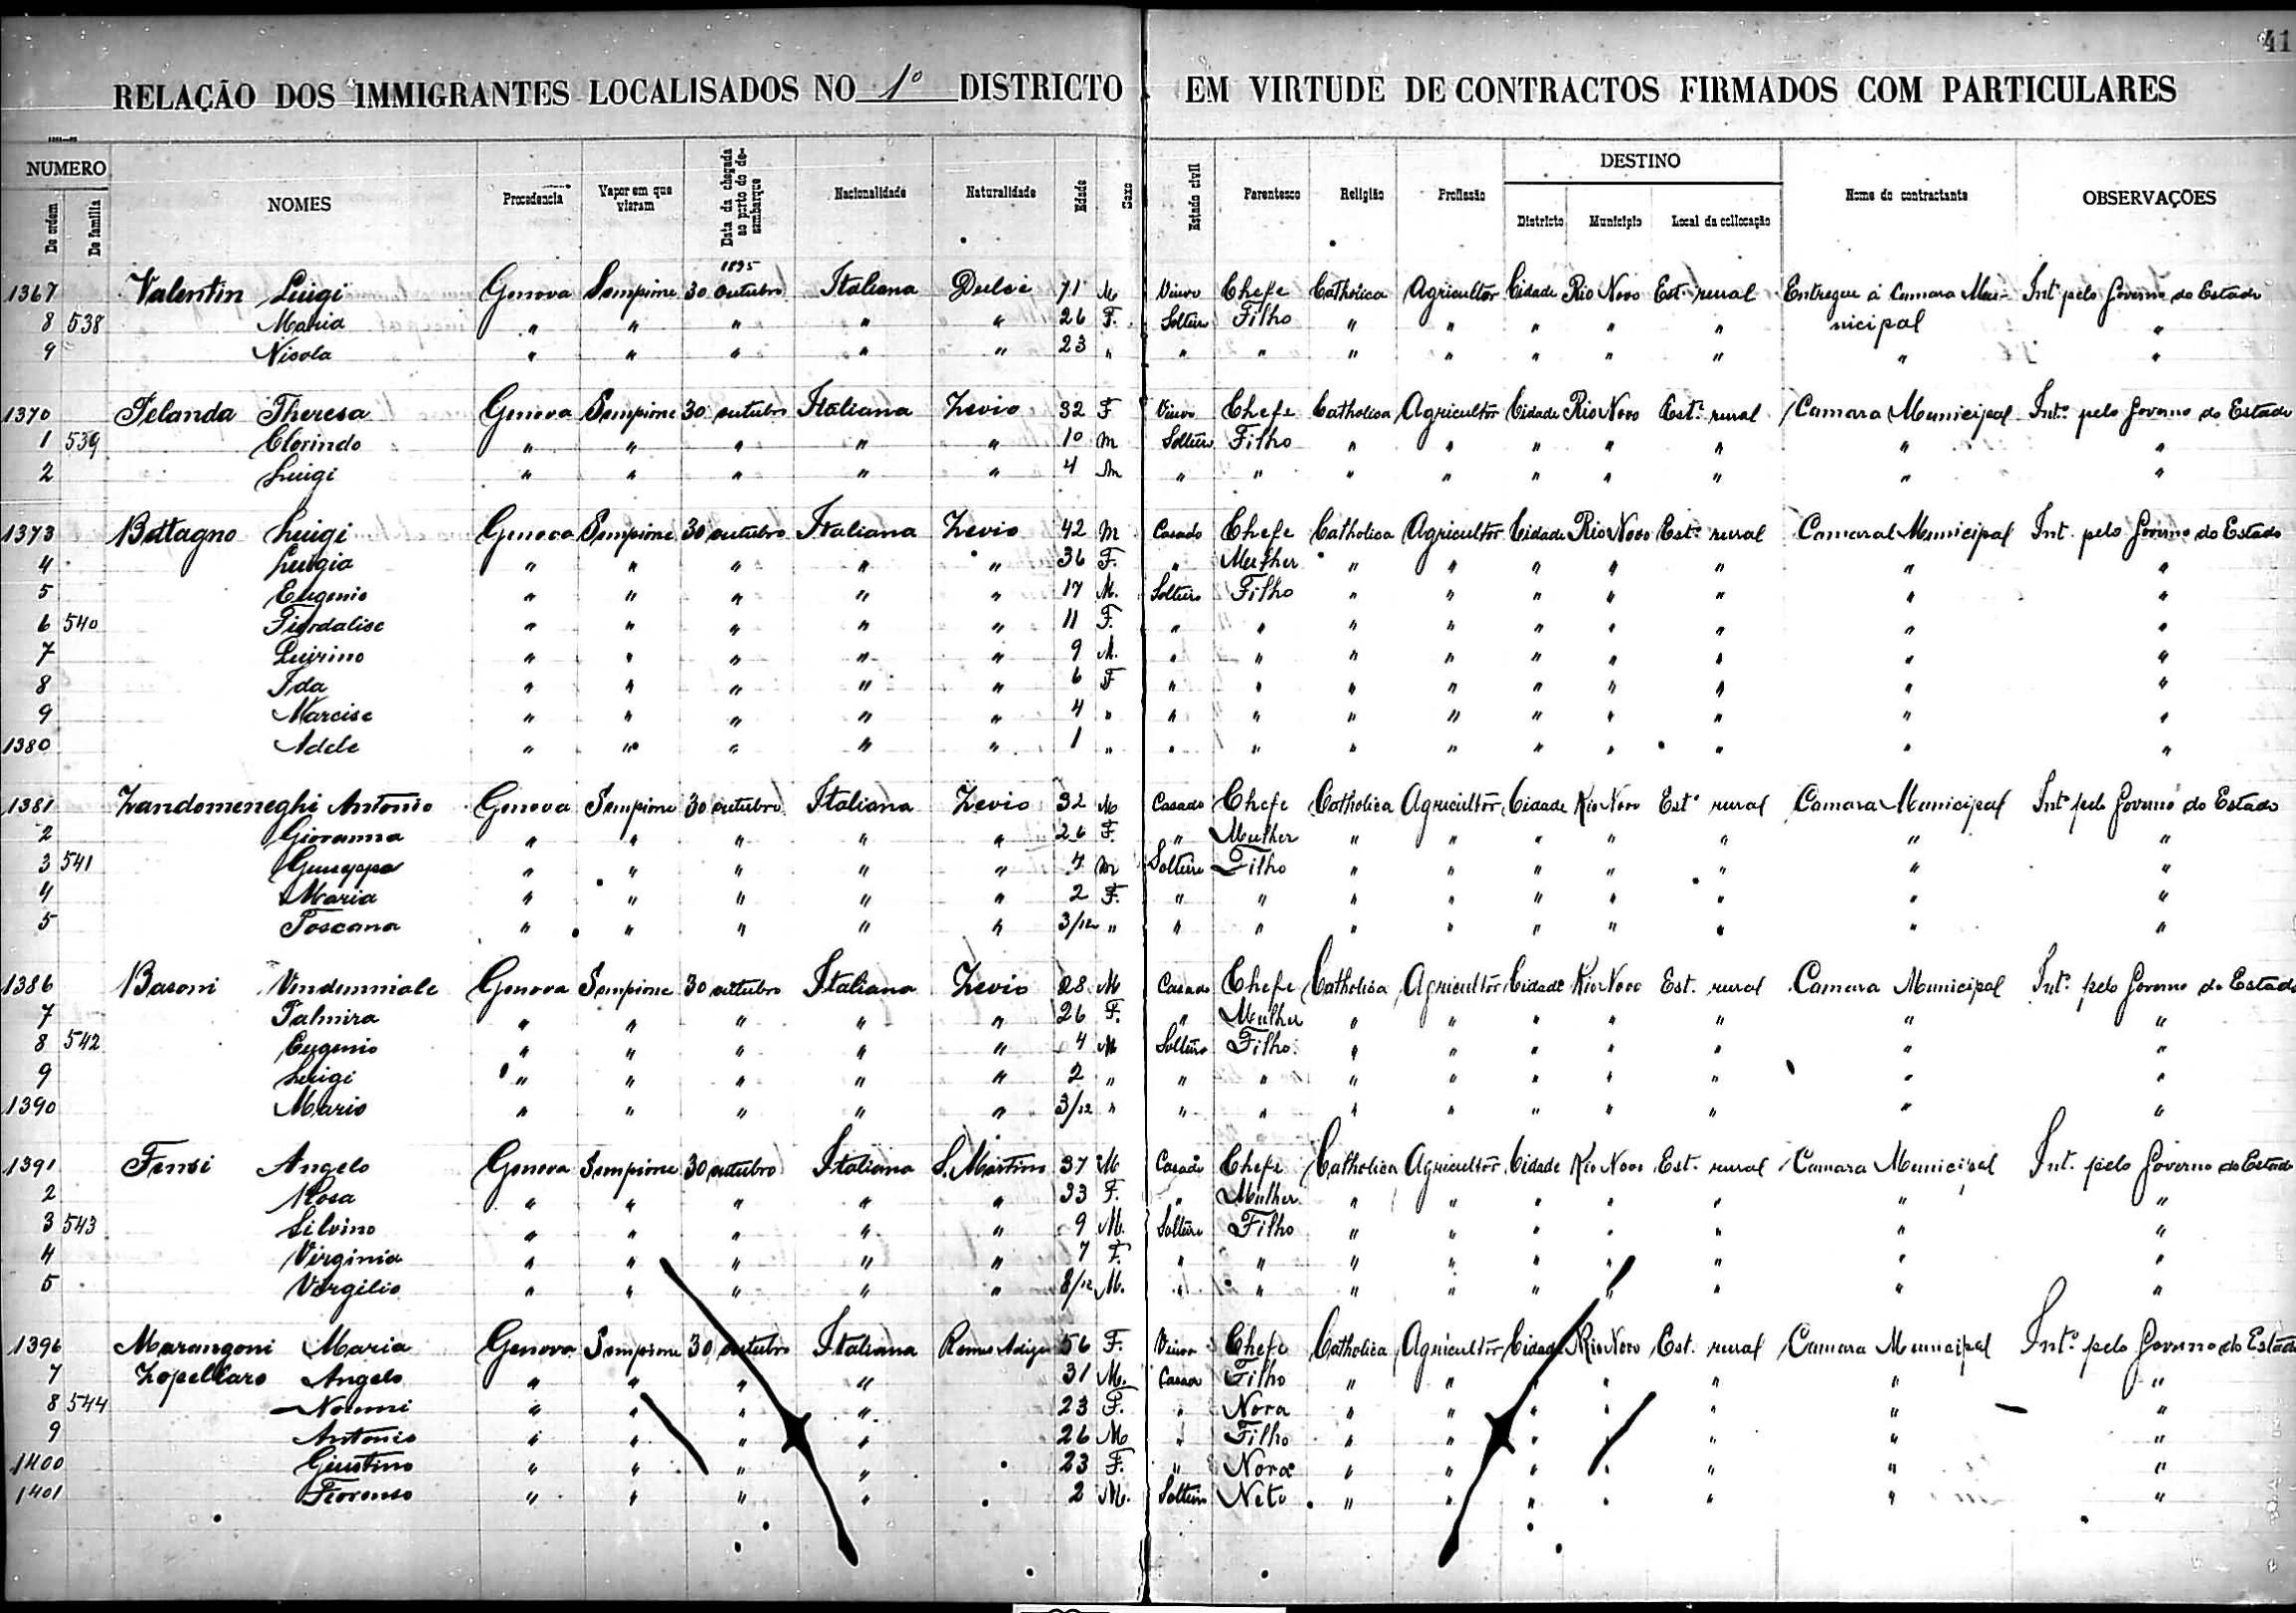 41
RELAÇÃO DOS IMMIGRANTES LOCALISADOS NO 1º DISTRICTO EM VIRTUDE DE CONTRACTOS FIRMADOS COM PARTICULARES
NUMERO De ordem De familia NOMES Procedencia Vapor em que vieram Data da chegada ao porto do desembarque Nacionalidade Naturalidade Edade Sexo Estado civil Parentesco Religião Profissão DESTINO Districto Municipio Local da collocação Nome do contractante OBSERVAÇÕES
1895
1367 Valentin Luigi Genova Sempione 30 outubro Italiana Dulcè 71 M Viuvo Chefe Catholica Agricultor Cidade Rio Novo Est. rural Entregue á Camara Mu- Intº pelo Governo do Estado
8 538 Maria " " " " " 26 F. Solteiro Filho " " " " " nicipal "
9 Nisola " " " " " 23 " " " " " " " " " "
1370 Pelanda Theresa Genova Sempione 30 outubro Italiana Zevio 32 F Viuvo Chefe Catholica Agricultor Cidade Rio Novo Estº rural Camara Municipal Intº pelo Governo do Estado
1 539 Clorindo " " " " " 10 m Solteiro Filho " " " " " " "
2 Luigi " " " " " 4 m " " " " " " " " "
1373 Bottagno Luigi Genova Sempione 30 outubro Italiana Zevio 42 M Casado Chefe Catholica Agricultor Cidade Rio Novo Estº rural Camaral Municipal Int. pelo Governo do Estado
4 Luigia " " " " " 36 F. " Mulher " " " " " " "
5 Eugenio " " " " " 17 M. Solteiro Filho " " " " " " "
6 540 Fiordalise " " " " " 11 F. " " " " " " " " "
7 Quirino " " " " " 9 M. " " " " " " " " "
8 Ida " " " " " 6 F " " " " " " " " "
9 Narcise " " " " " 4 " " " " " " " " " "
1380 Adele " " " " " 1 " " " " " " " " " "
1381 Zandomeneghi Antonio Genova Sempione 30 outubro Italiana Zevio 32 M Casado Chefe Catholica Agricultor Cidade Rio Novo Estº rural Camara Municipal Intº pelo Governo do Estado
2 Giovanna " " " " " 26 F. " Mulher " " " " " " "
3 541 Giuseppe " " " " " 4 m Solteiro Filho " " " " " " "
4 Maria " " " " " 2 F. " " " " " " " " "
5 Toscana " " " " " 3/12 " " " " " " " " " "
1386 Basoni Vindemniale Genova Sempione 30 outubro Italiana Zevio 28 M Casado Chefe Catholica Agricultor Cidade Rio Novo Est. rural Camara Municipal Intº pelo Governo do Estado
7 Palmira " " " " " 26 F. " Mulher " " " " " " "
8 542 Eugenio " " " " " 4 M Solteiro Filho " " " " " " "
9 Luigi " " " " " 2 " " " " " " " " " "
1390 Mario " " " " " 3/12 " " " " " " " " " "
1391 Fensi Angelo Genova Sempione 30 outubro Italiana S. Martino 37 M Casado Chefe Catholica Agricultor Cidade Rio Novo Est. rural Camara Municipal Int. pelo Governo do Estado
2 Rosa " " " " " 33 F. " Mulher " " " " " " "
3 543 Silvino " " " " " 9 M. Solteiro Filho " " " " " " "
4 Virginia " " " " " 7 F. " " " " " " " " "
5 Virgilio " " " " " 8/12 M. " " " " " " " " "
1396 Marangoni Maria Genova Sempione 30 outubro Italiana 56 F. Viuvo Chefe Catholica Agricultor Cidade Rio Novo Est. rural Camara Municipal Intº pelo Governo do Estado
7 Zopellaro Angelo " " " " 31 M. Casado Filho " " " " " " "
8 544 Noemi " " " " 23 F. " Nora " " " " " " "
9 Antonio " " " " 26 M " Filho " " " " " " "
1400 Giustino " " " " 23 F. " Nora " " " " " " "
1401 Fiorenso " " " " 2 M. Solteiro Neto " " " " " " "